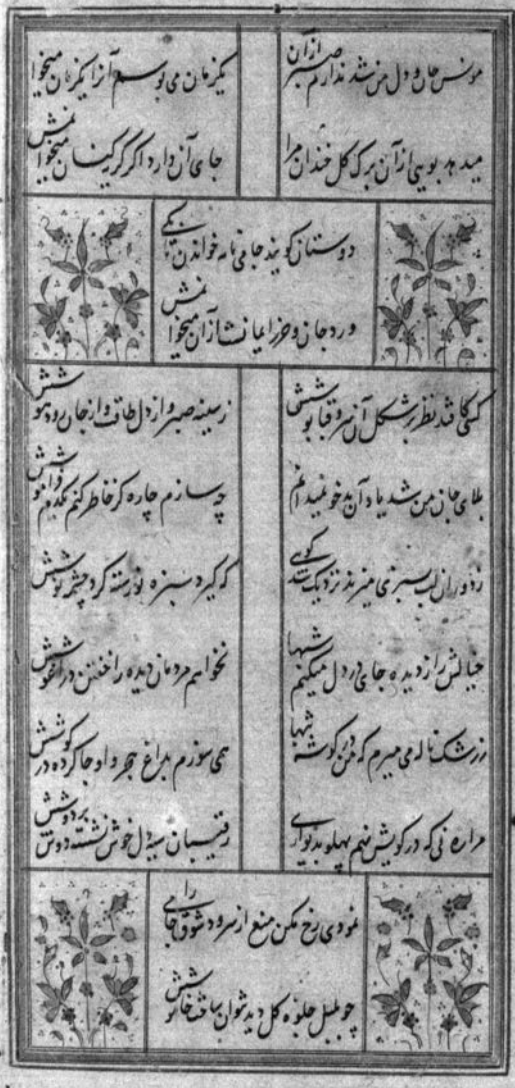 مونس جان و دل من شد ندارم صبر ازآن
یکزمان می بوسم آنرا یکزمان میخوانمش
میدهد بویی ازآن برک کل خندان مرا
جای آن دارد اکر کریکنان میخوانمش
دوستان کویند جامی نامه خواندن تا بکی
ورد جان و حرز ایمانست ازآن میخوانمش
کسی کافتد نظر بر شکل آن سرو قبا پوشش
ز سینه صبر و از دل طاقت و از جان رود هوشش
بلای جان من شد یاد آن بدخو نمیدانم
چه سازم چاره کر خاطر کنم یکدم فراموشش
ز دور ان لب سبزی میزند نزدیک شد کویی
که کیرد سبزه نورسته کرد چشمه نوشش
خیالش را ز دیده جای در دل میکنم شبها
نخواهم مردمان دیده را خفتن در آغوشش
ز رشک ناله می میرم که من در کوشه شبها
همی سوزم بداغ هجر و او جا کرده در کوشش
مرا ره نی که در کویش نهم پهلو بدیواری
رقیبان سیه دل خوش نشسته دوش بر دوشش
نمودی رخ مکن منع از سرود شوق جامی را
چو بلبل جلوه کل دید نتوان ساخت خاموشش